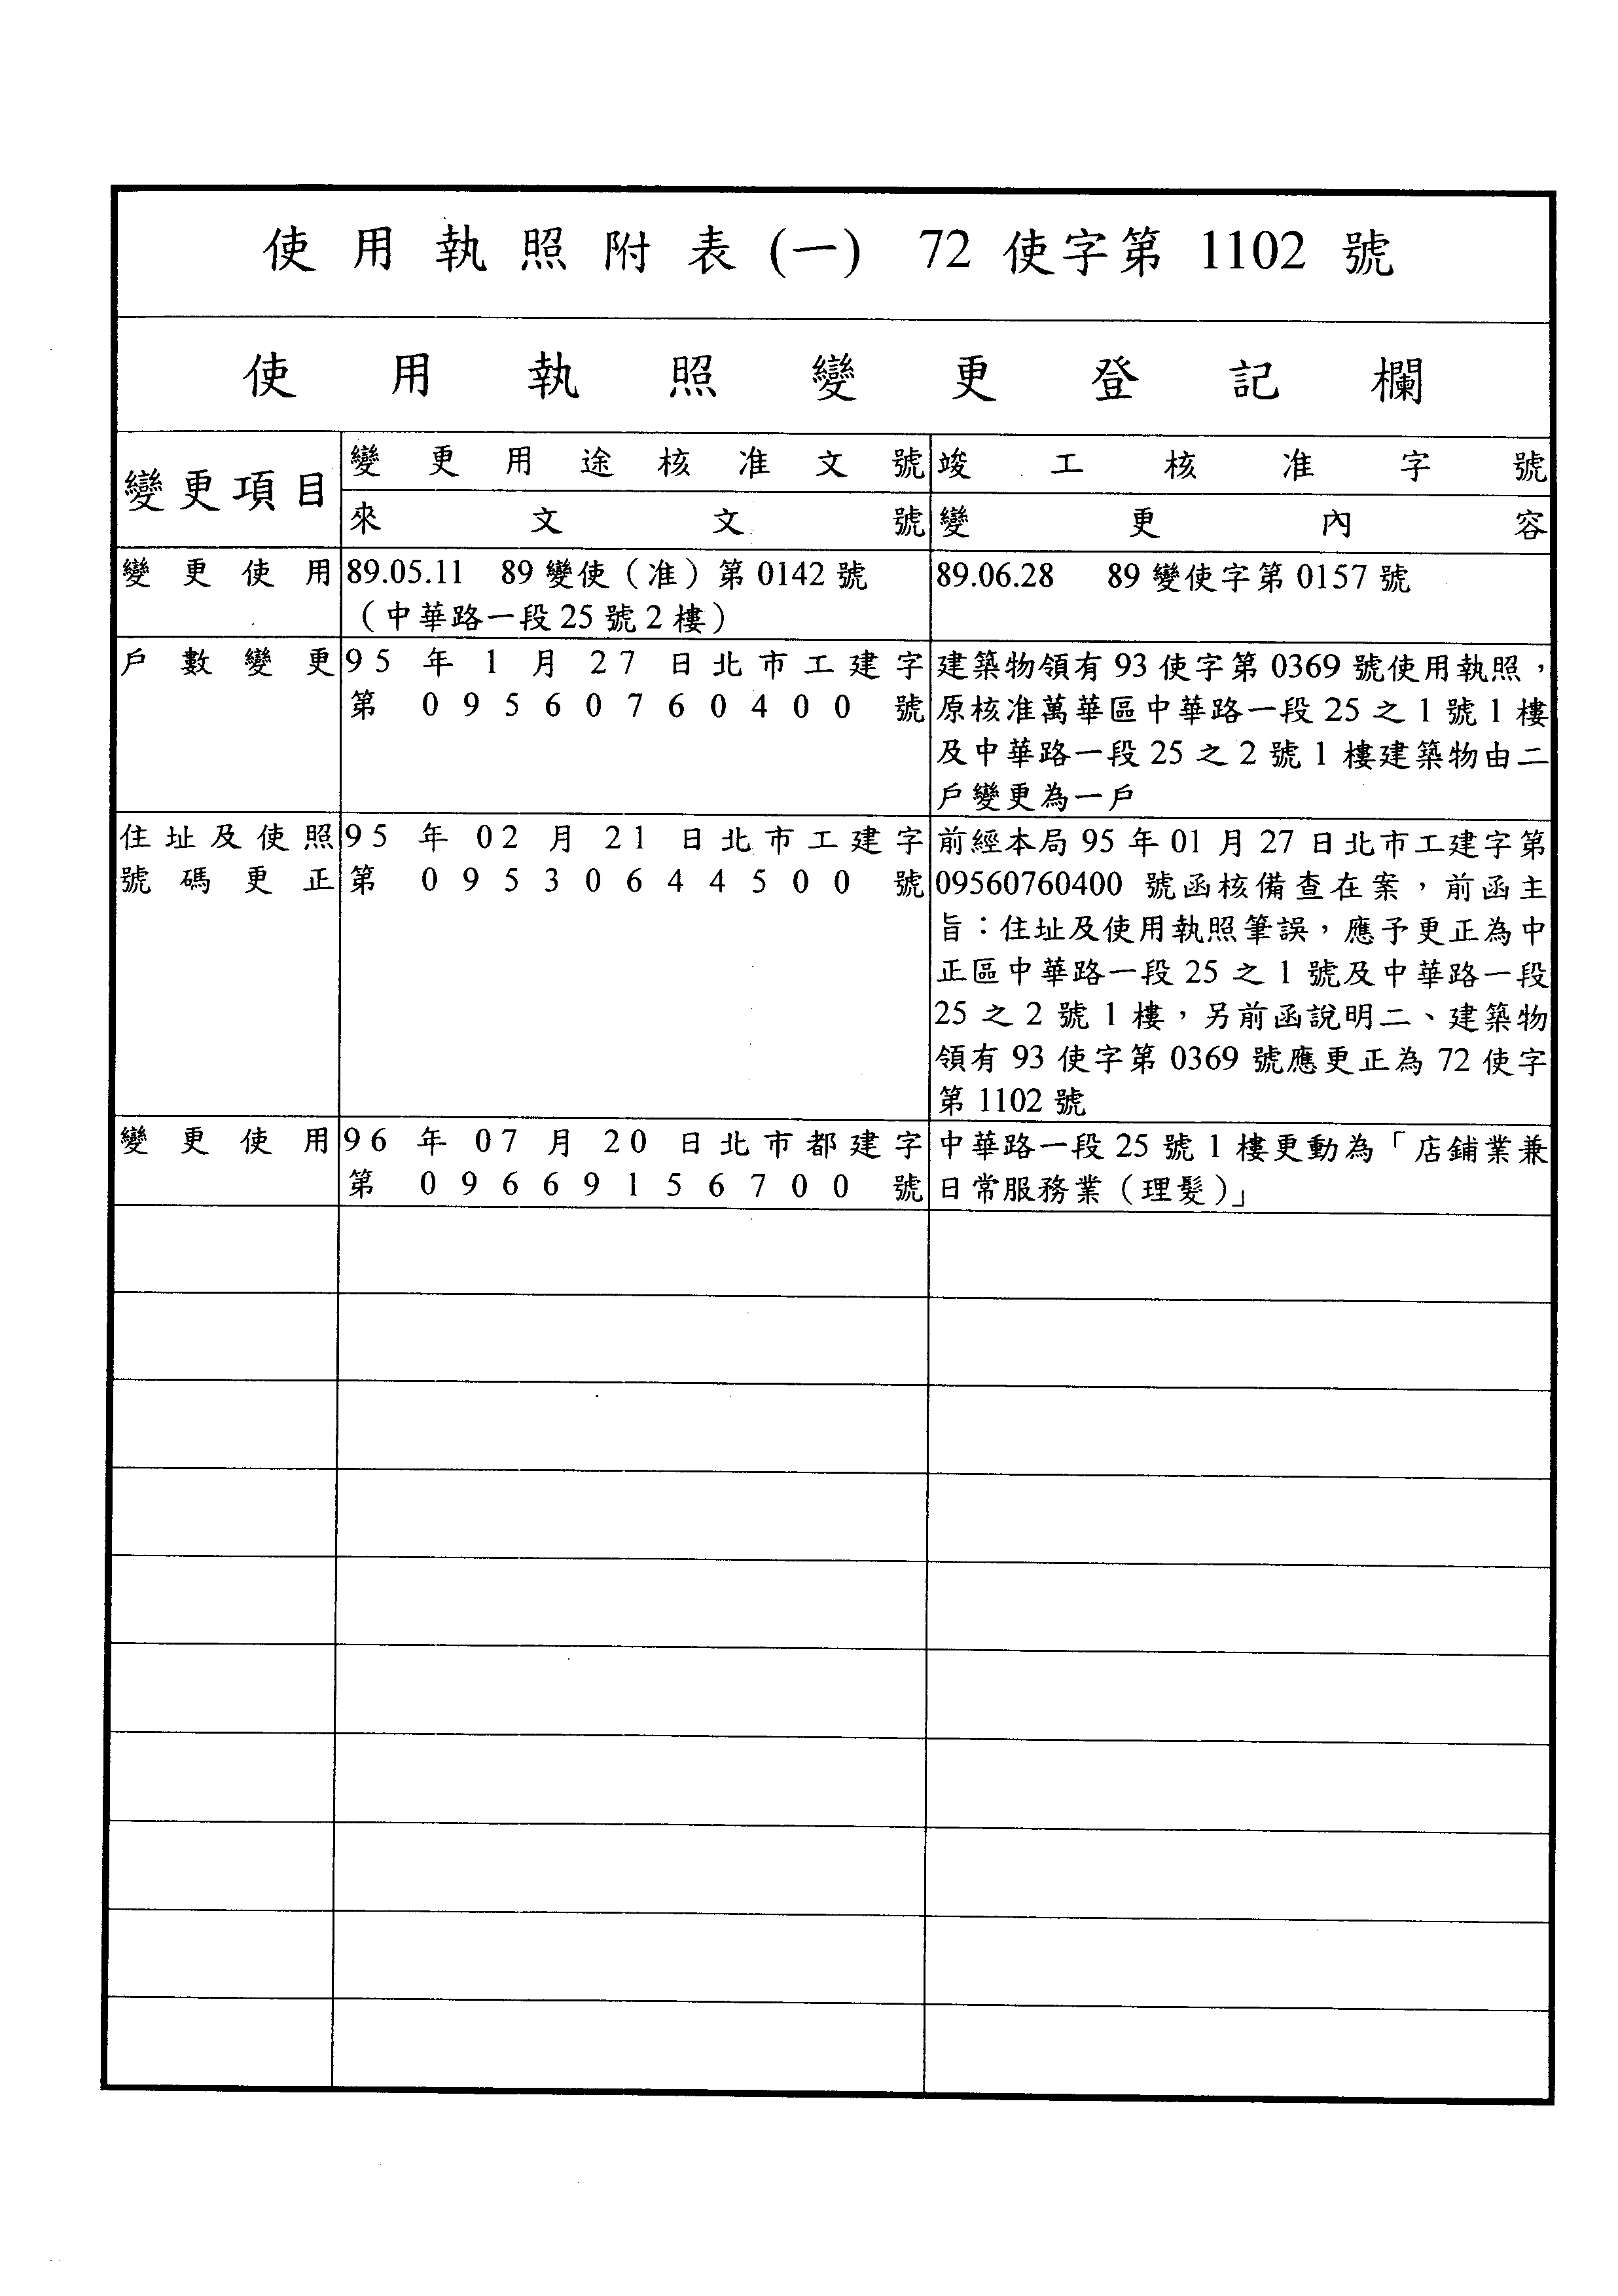 使用執照附表(一) 72 使字第 1102 號
使用執照變更登記欄
變更項目
變更用途核准文號
竣工核准字號
來文文號
變更內容
變更使用
89.05.11 89 變使（准）第 0142 號
（中華路一段 25 號 2 樓）
89.06.28 89 變使字第 0157 號
戶數變更
95 年 1 月 27 日北市工建字
第 09560760400 號
建築物領有 93 使字第 0369 號使用執照，
原核准萬華區中華路一段 25 之 1 號 1 樓
及中華路一段 25 之 2 號 1 樓建築物由二
戶變更為一戶
住址及使照
號碼更正
95 年 02 月 21 日北市工建字
第 09530644500 號
前經本局 95 年 01 月 27 日北市工建字第
09560760400 號函核備查在案，前函主
旨：住址及使用執照筆誤，應予更正為中
正區中華路一段 25 之 1 號及中華路一段
25 之 2 號 1 樓，另前函說明二、建築物
領有 93 使字第 0369 號應更正為 72 使字
第 1102 號
變更使用
96 年 07 月 20 日北市都建字
第 09669156700 號
中華路一段 25 號 1 樓更動為「店鋪業兼
日常服務業（理髮）」